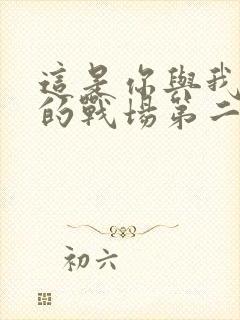 這是你與我
的戰場第二
初六